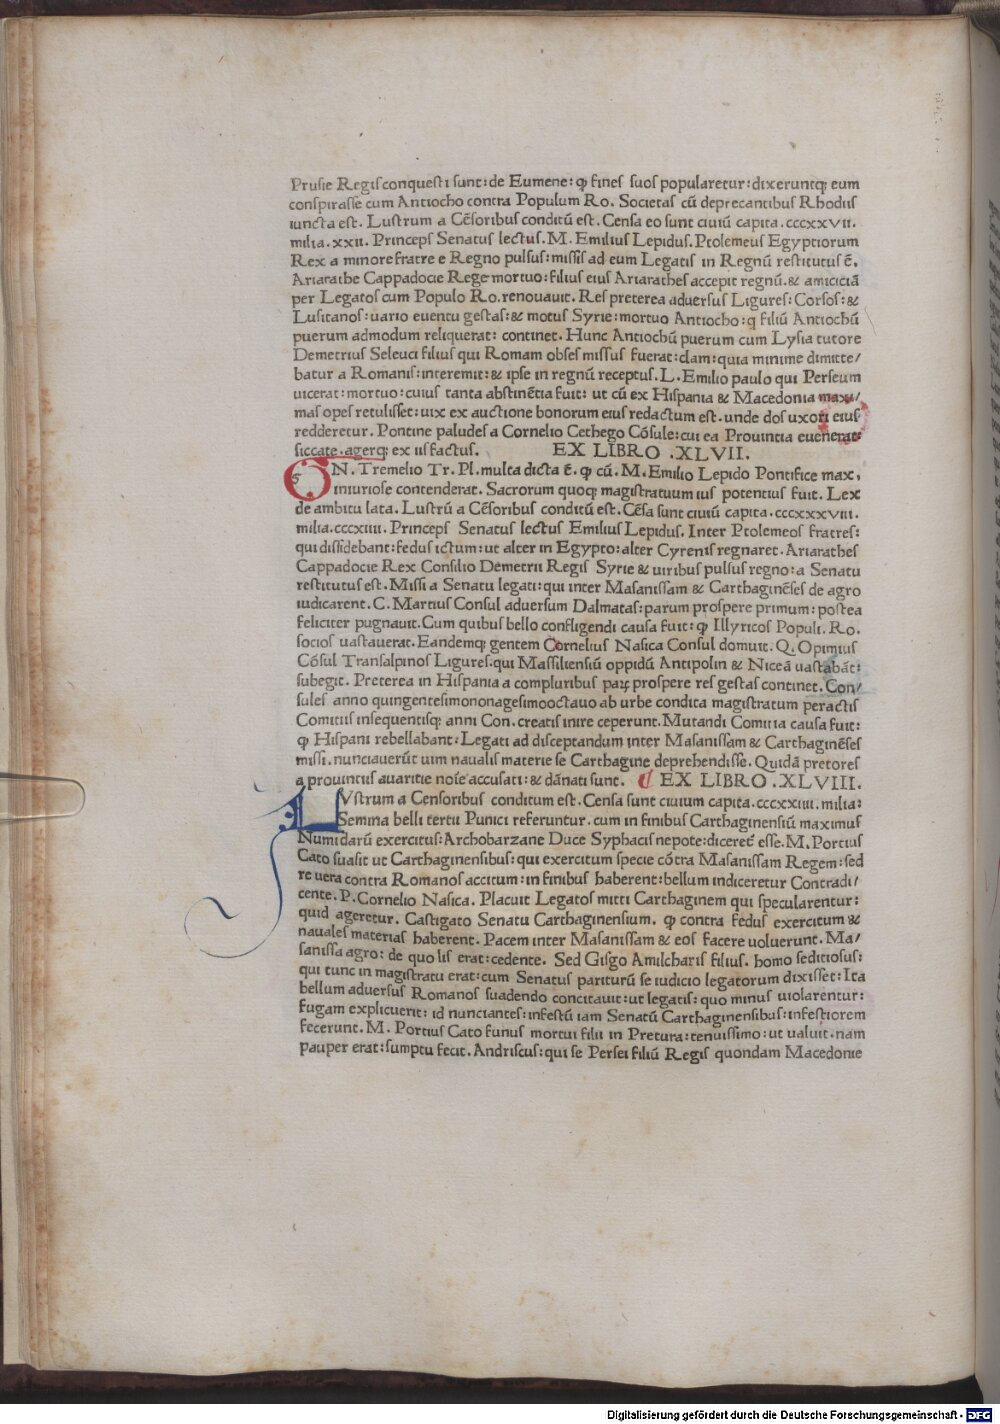 Prusie Regis conquesti sunt: de Eumene: ꝙ fines suos popularetur: dixeruntq; eum
conspirasse cum Antiocho contra Populum Ro. Societas cū deprecantibus Rhodiis
iuncta est. Lustrum a Cēsoribus conditū est. Censa eo sunt ciuiū capita. cccxxvii.
milia. xxii. Princeps Senatus lectus. M. Emilius Lepidus. Ptolemeus Egyptiorum
Rex a minore fratre e Regno pulsus: missis ad eum Legatis in Regnū restitutus ē.
Ariarathe Cappadocie Rege mortuo: filius eius Ariarathes accepit regnū. & amiciciā
per Legatos cum Populo Ro. renouauit. Res preterea aduersus Ligures: Corsos: &
Lusitanos: uario euentu gestas: & motus Syrie: mortuo Antiocho: q filiū Antiochū
puerum admodum reliquerat: continet. Hunc Antiochū puerum cum Lysia tutore
Demetrius Seleuci filius qui Romam obses missus fuerat: clam: quia minime dimitte/
batur a Romanis: interemit: & ipse in regnū receptus. L. Emilio paulo qui Perseum
uicerat: mortuo: cuius tanta abstinētia fuit: ut cū ex Hispania & Macedonia maxi/
mas opes retulisset: uix ex auctione bonorum eius redactum est. unde dos uxori eius
redderetur. Pontine paludes a Cornelio Cethego Cōsule: cui ea Prouintia euenerat:
siccate. agerq; ex iis factus. EX LIBRO .XLVII.
GN. Tremelio Tr. Pl. multa dicta ē. ꝙ cū. M. Emilio Lepido Pontifice max,
iniuriose contenderat. Sacrorum quoq; magistratuum ius potentius fuit. Lex
de ambitu lata. Lustrū a Cēsoribus conditū est. Cēsa sunt ciuiū capita. cccxxxviii.
milia. cccxiiii. Princeps Senatus lectus Emilius Lepidus. Inter Ptolemeos fratres:
qui dissidebant: fedus ictum: ut alter in Egypto: alter Cyrenis regnaret. Ariarathes
Cappadocie Rex Consilio Demetrii Regis Syrie & uiribus pulsus regno: a Senatu
restitutus est. Missi a Senatu legati: qui inter Masanissam & Carthaginēses de agro
iudicarent. C. Martius Consul aduersum Dalmatas: parum prospere primum: postea
feliciter pugnauit. Cum quibus bello confligendi causa fuit: ꝙ Illyricos Populi. Ro.
socios uastauerat. Eandemq; gentem Cornelius Nasica Consul domuit. Q. Opimius
Cōsul Transalpinos Ligures: qui Massiliensiū oppidū Antipolin & Niceā uastabāt:
subegit. Preterea in Hispania a compluribus parꝝ prospere res gestas continet. Con/
sules anno quingentesimononagesimooctauo ab urbe condita magistratum peractis
Comitiis insequentisq; anni Con. creatis inire ceperunt. Mutandi Comitia causa fuit:
ꝙ Hispani rebellabant. Legati ad disceptandum inter Masanissam & Carthaginēses
missi. nunciauerūt uim naualis materie se Carthagine deprehendisse. Quidā pretores
a prouintiis auaritie noīe accusati: & dānati sunt. ¶ EX LIBRO .XLVIII.
LVstrum a Censoribus conditum est. Censa sunt ciuium capita. cccxxiiii. milia:
Semma belli tertii Punici referuntur. cum in finibus Carthaginensiū maximus
Numidarū exercitus: Archobarzane Duce Syphacis nepote: diceret̄ esse. M. Portius
Cato suasit ut Carthaginensibus: qui exercitum specie cōtra Masanissam Regem: sed
re uera contra Romanos accitum: in finibus haberent: bellum indiceretur Contradi/
cente. P. Cornelio Nasica. Placuit Legatos mitti Carthaginem qui specularentur:
quid ageretur. Castigato Senatu Carthaginensium. ꝙ contra fedus exercitum &
nauales materias haberent. Pacem inter Masanissam & eos facere uoluerunt. Ma/
sanissa agro: de quo lis erat: cedente. Sed Gisgo Amilcharis filius. homo seditiosus:
qui tunc in magistratu erat: cum Senatus pariturū se iudicio legatorum dixisset: Ita
bellum aduersus Romanos suadendo concitauit: ut legatis: quo minus uiolarentur:
fugam explicuerit: id nunciantes: infestū iam Senatū Carthaginensibus: infestiorem
fecerunt. M. Portius Cato funus mortui filii in Pretura: tenuissimo: ut ualuit. nam
pauper erat: sumptu fecit. Andriscus: qui se Persei filiū Regis quondam Macedonie
Digitalisierung gefördert durch die Deutsche Forschungsgemeinschaft - DFG